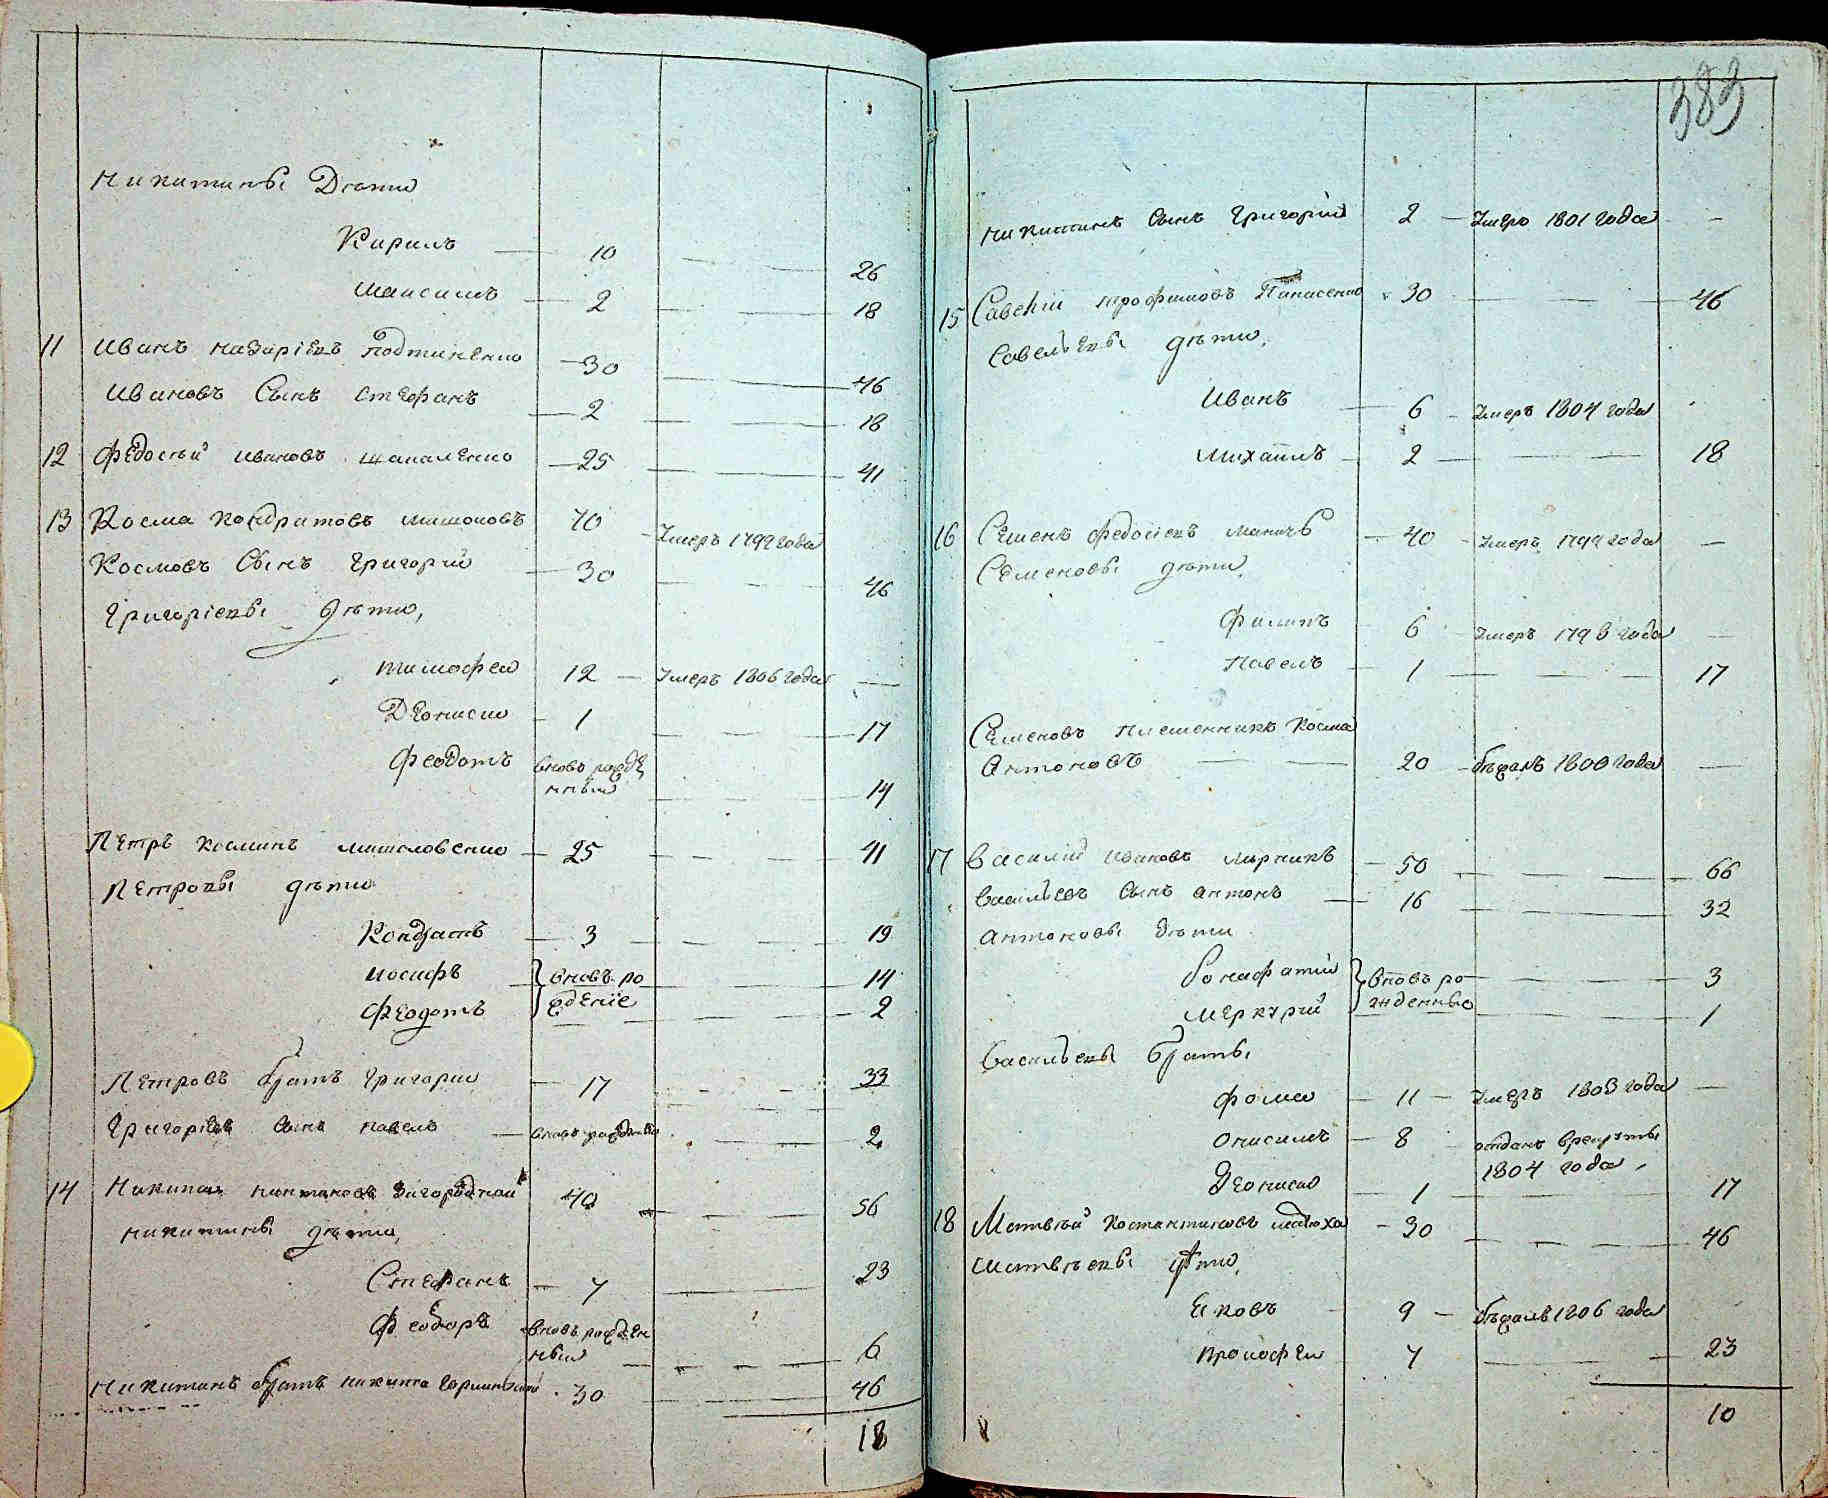 Никитины Дѣти
Кирилъ 10 26
Максимъ 2 18
11 Иванъ Назаріевъ 30 46
Ивановъ Сынъ Стефанъ 2 18
12 Федосѣй Ивановъ 25 41
13 Косма Кондратовъ 70 Умеръ 1797 года
Космовъ Сынъ Григорій 30 46
Григоріевы дѣти,
Тимофей 12 Умеръ 1806 года
Деонисій 1 17
Феодотъ вновь рожде
нный 14
Петръ Косминъ 25 41
Петровы дѣти
Кондратъ 3 19
Иосифъ вновь ро 14
Феодотъ жденіе 2
Петровъ братъ Григорий 17 33
Григоріевъ сынъ Павелъ вновь рожденный 2
14 Никита 40 56
Никитины дѣти,
Стефанъ 7 23
Феодоръ вновь рожден
ный 6
Никитинъ братъ Никита 30 46
18
383
Никитинъ Сынъ Григорій 2 Умеръ 1801 года
15 Савелій Трофимовъ Панасенко 30 46
Савельевы дѣти,
Иванъ 6 Умеръ 1804 года
Михайлъ 2 18
16 Семенъ Федосіевъ 40 Умеръ 1797 года
Семеновы дѣти
Филипъ 6 Умеръ 1798 года
Павелъ 1 17
Семеновъ племенникъ Косма
Антоновъ 20 бѣжалъ 1800 года
17 Василій Ивановъ Мирникъ 50 66
Васильевъ Сынъ Антонъ 16 32
Антоновы дѣти
Бонифатій вновь ро 3
Меркурій жденные 1
Васильевы братьы
Фома 11 Умеръ 1803 года
Онисимъ 8 отданъ врекруты
1804 года
Деонисій 1 17
18 Матвѣй Костантиновъ 30 46
Матвѣевы дѣти,
Яковъ 9 бѣжалъ 1806 года
Прокофей 7 23
10